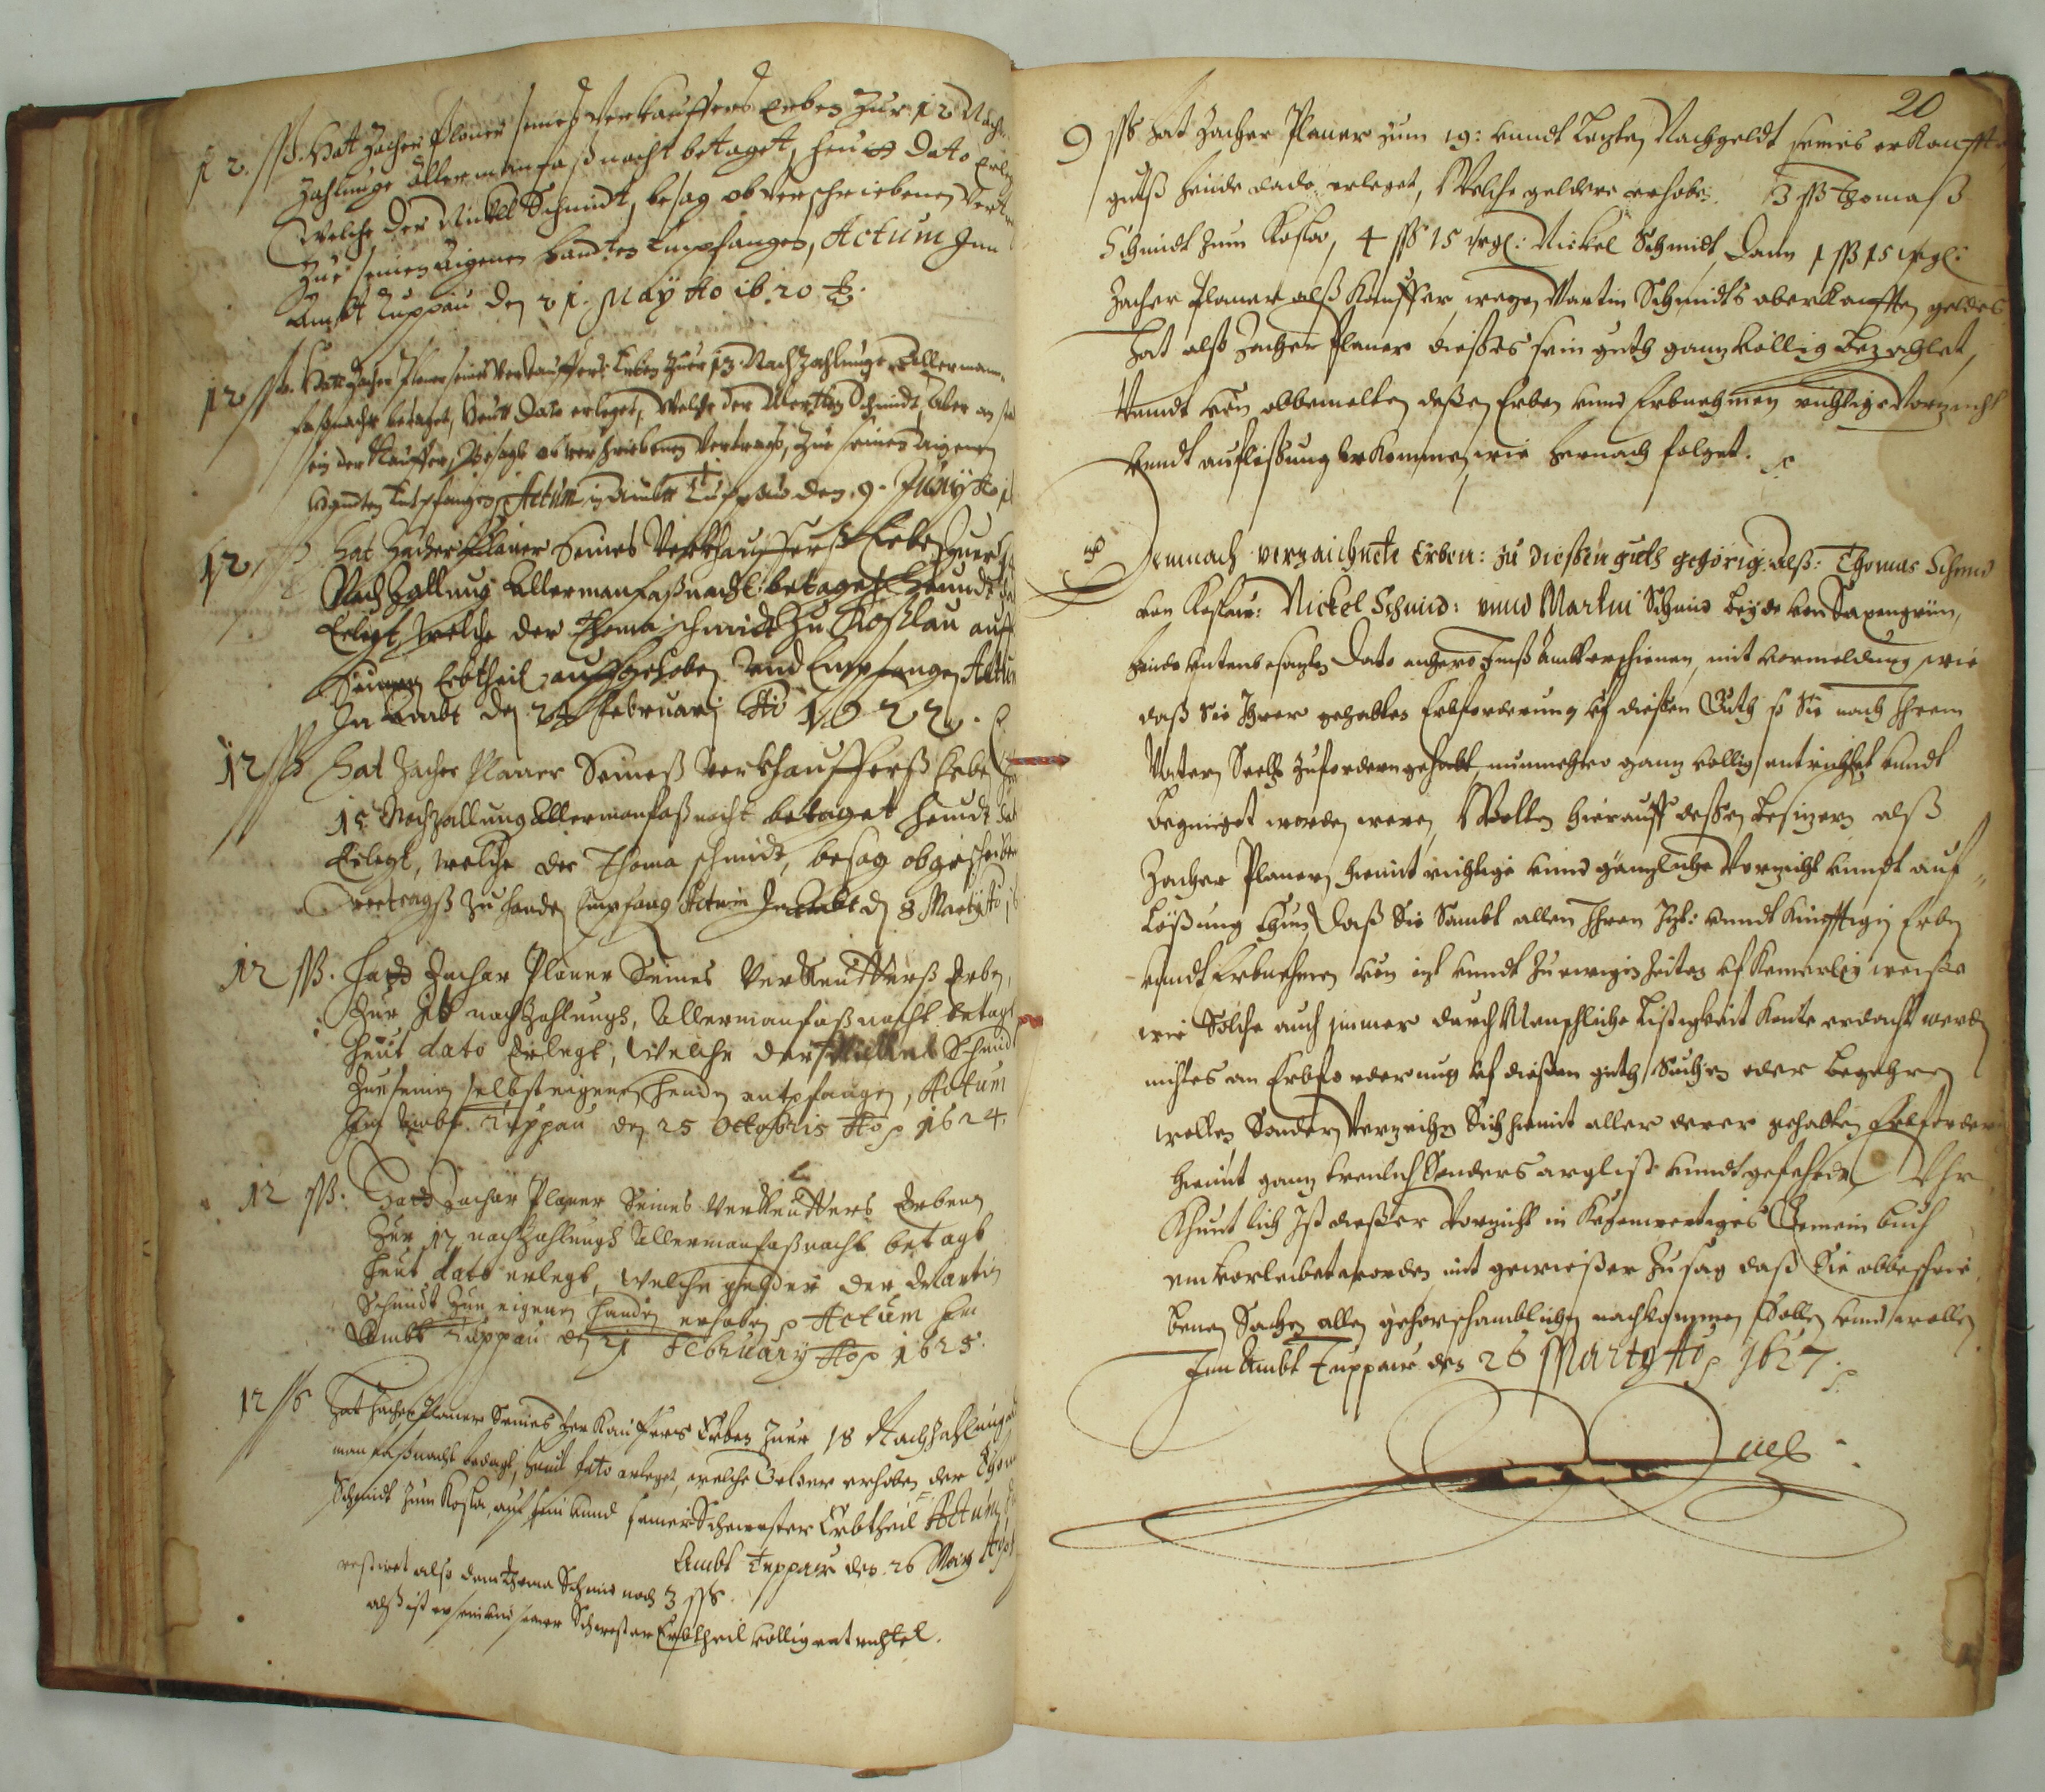 12. ßß. Hatt Zacher Planer seines Verkauffers Erben Zur 12 Nach
Zahlunge allermanfaßnacht betaget, heutt Dato Erleg
Welche der Nickel Schmidt, besag obverschriebenen Vertra
Zue seinen Eigenen handten Empfangen, Actum Im
Ambt Tuppau den 21. May Ao 1620
12 ßß. Hatt Zacher Planer seines Verkauffers Erben Zuer 13. NachZahlunge Allerman,
faßnacht betaget, Heutt Dato erleget, Welche der Merthen Schmidt, aber an sta
der Kauffer, Besagt obverschriebenen Vertrags, Zue seinen Aigenen
Handten Entpfangen, Actum in Ambtt Tuppau den 9. Juny Ao
12 ßß hat Zacher Planer Seines Verkhauffersß Erben Zuer
NachZallung Allermanfaßnacht betaget Heundt
Erlegt, Welche der Thoma schmidt Zu Koßlau auff
Seinen Erbtheil auffgehoben Vnd Empfangen Actum
In Ambt den 24 Februarj Ao 1622.
12 ßß hat Zacher Planer Seineß Verkhaufferß Erben
15 Nachzallung Allermanfaßnacht betaget Heundt dat
Erlegt, Welche der Thoma schmidt, besag obgeschriben
Vertragß Zu handen Empfang Actum In Ambt den 8 Marty Ao
12 ßß. Hatt Zachar Planer Seines Verkeufferß Erben,
Zur 16 nachZahlungs, Allermanfaßnacht betagt
Heut dato Erlegt, Welche der Nickel Schmidt
Zue seinen selbst eigenen Henden entpfangen, Actum
Im Ambt Tuppau den 25 Octobris Ao 1624.
12 ßß: Hatt Zachar Planer Seines Verkeuffers Erben
Zur 17 nachZahlungs Allermanfaßnacht betagt
Heut dato erlegt, Welche gelder der Martin
Schmidt Zue eigenen Handen erhoben Actum Im
Ambt Tuppau den 21 February Ao 1625.
12 ßß Hat Zacher Planer Seines VerKauffers Erben Zuer 18 Nachzahlung
manfaßnacht betagt, Heut dato erleget, welche Gelder erhoben der Thoma
Schmidt Zum Koslau, auf sein vnnd seiner Schwester Erbtheil Actum,
Ambt Tuppau den 26 May Ao
restiret also dem Thoma Schmid noch 3 ßß.
alß ist er sein vnd seiner Schwester Erbtheil völlig entrichtet.
20
9 ßß hat Zacher Planer zum 19: vnndt Letzten Nachgeldt seines erKaufften
gutß heinde dado erleget, Welche geldere erhoben: 3 ßß Thomaß
Schmidt zum Koslau, 4 ßß 15 Nickel Schmidt, Dann 1 ßß 15
Zacher Planer alß Kauffer, wegen Martin Schmidts aberkaufften geldes
Hat alß Zacher Planer dießes sein guth ganz völlig bezahlet,
Vnndt von obbemelten deßen Erben vnnd Erbnehmen richtige Vorzicht
vnndt auflaßung bekommen, wie hernach folget.
Demnach verzaichnete Erben: zu diesßen guth gehörig: alß: Thomas Schmid
von Koßlau: Nickel Schmid: vnnd Martin Schmid beyde von Saxengrün,
heinde vntenbesagten Dato anhero Inß Ambt erschienen, mit vormeldung, wie
daß Sie Ihrer gehabten Erbforderung vf dießen Guth so Sie nach Ihrem
Vatern Seelg. zufordern gehabt, nunmehro ganz völlig entrichtet vnndt
Begnüget worden weren, Wollen hierauff deßen besitzern alß
Zacher Planern hiemit richtige vnnd gänzliche Vorzicht vnndt auf„
Lößung thun, Daß Sie Sambt allen Ihren Itzt: vnndt Künfftigen Erben
vnndt Erbnehmen von izt vnndt Zu ewigen Zeiten vf keinerley weiße
wie Solche auch jmmer durch Menschliche Listigkeit könte erdacht werden
nichtes an Erbforderung vf dießen guth Suchen oder begehren
wollen Sondern Verzeihen Sich hiemit aller derer gehabten Erbforder
hiemit ganz treulich Sonders arglist vnndt gefehrde, Vhr
Khunt lich Ist dießer Vorzicht in Kegenwertiges Gemein buch
einVorleibet worden mit gewießer Zusag daß Sie obbeschrie
benen Sachen allen gehorschamblichen nachkommen Sollen vnnd wollen
Im Ambt Tuppau den 26 Marty Ao 1627.